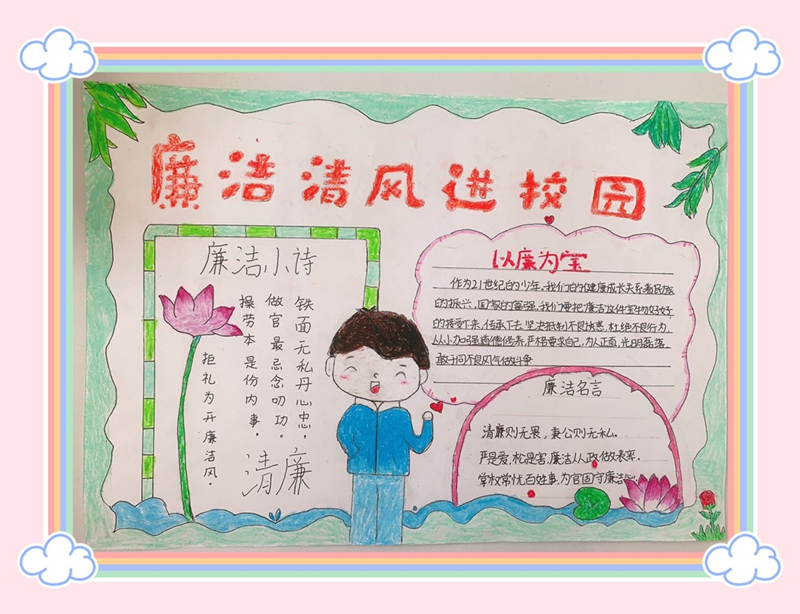 廉洁清风进校园
廉洁小诗
铁面无私丹心忠，
做官最忌念叨功。
操劳本是份内事。
拒礼为开廉洁风。
清廉
以廉为宝
作为21世纪的少年、我们的健康成长关系着民族
的振兴，国家的富强。我们要把廉洁这件宝物好好
的接受下来，传承下去。坚决抵制不良诱惑，杜绝不良行为
从小加强道德修养，严格要求自己，为人正直，光明磊落，
敢于同不良风气做斗争
廉洁名言
清廉则无畏，秉公则无私。
严是爱，松是害，廉洁从政做表率。
掌权常忧百姓事，为官固守廉洁心